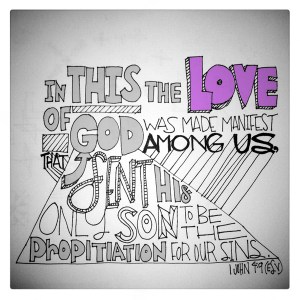 IN THIS THE LOVE
OF GOD WAS MADE MANIFEST
THAT AMONG US,
SENT HIS
ONLY SON TO BE
THE
PROPITIATION FOR OUR SINS.
1 JOHN 4:9 (ESV)